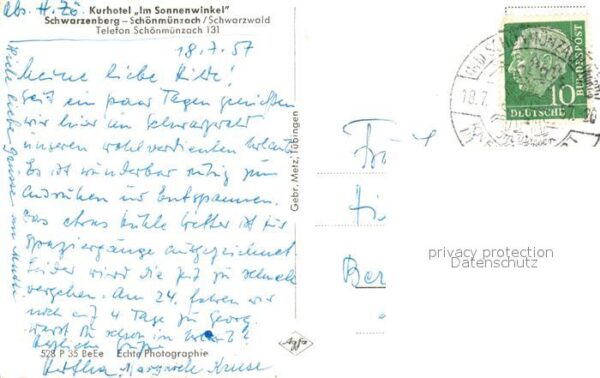 Abs. H. Zö.
Kurhotel „Im Sonnenwinkel"
Schwarzenberg – Schönmünzach / Schwarzwald
Telefon Schönmünzach 131
18.7.57
Meine liebe Hilde!
Seit ein paar Tagen genießen
wir hier im Schwarzwald
unseren wohlverdienten Urlaub.
Es ist wunderbar ruhig zum
Ausruhen und Entspannen.
Das etwas kühle Wetter ist für
Spaziergänge ausgezeichnet.
Leider wird die Zeit zu schnell
vergehen. Am 24. fahren wir
noch auf 4 Tage zu Georg.
Warst Du schon im Urlaub?
Herzliche Grüße
Hertha
Margarete Kruse
Viele liebe Grüsse von Mutti
528 P 35 BeEe Echte Photographie
Gebr. Metz, Tübingen
Agfa
10
DEUTSCHE
BUNDESPOST
18.7.
Ber
privacy protection
Datenschutz